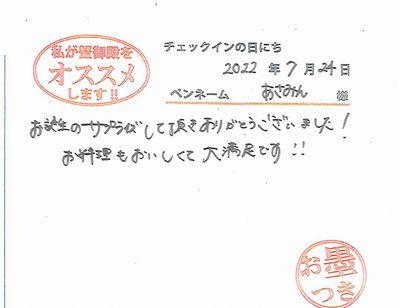 私が蟹御殿を
オススメ
します!!
チェックインの日にち
2022 年 7 月 24 日
ペンネーム あさみん 様
お誕生のサプライズして頂きありがとうございました!
お料理もおいしくて大満足です!!
お墨
つき